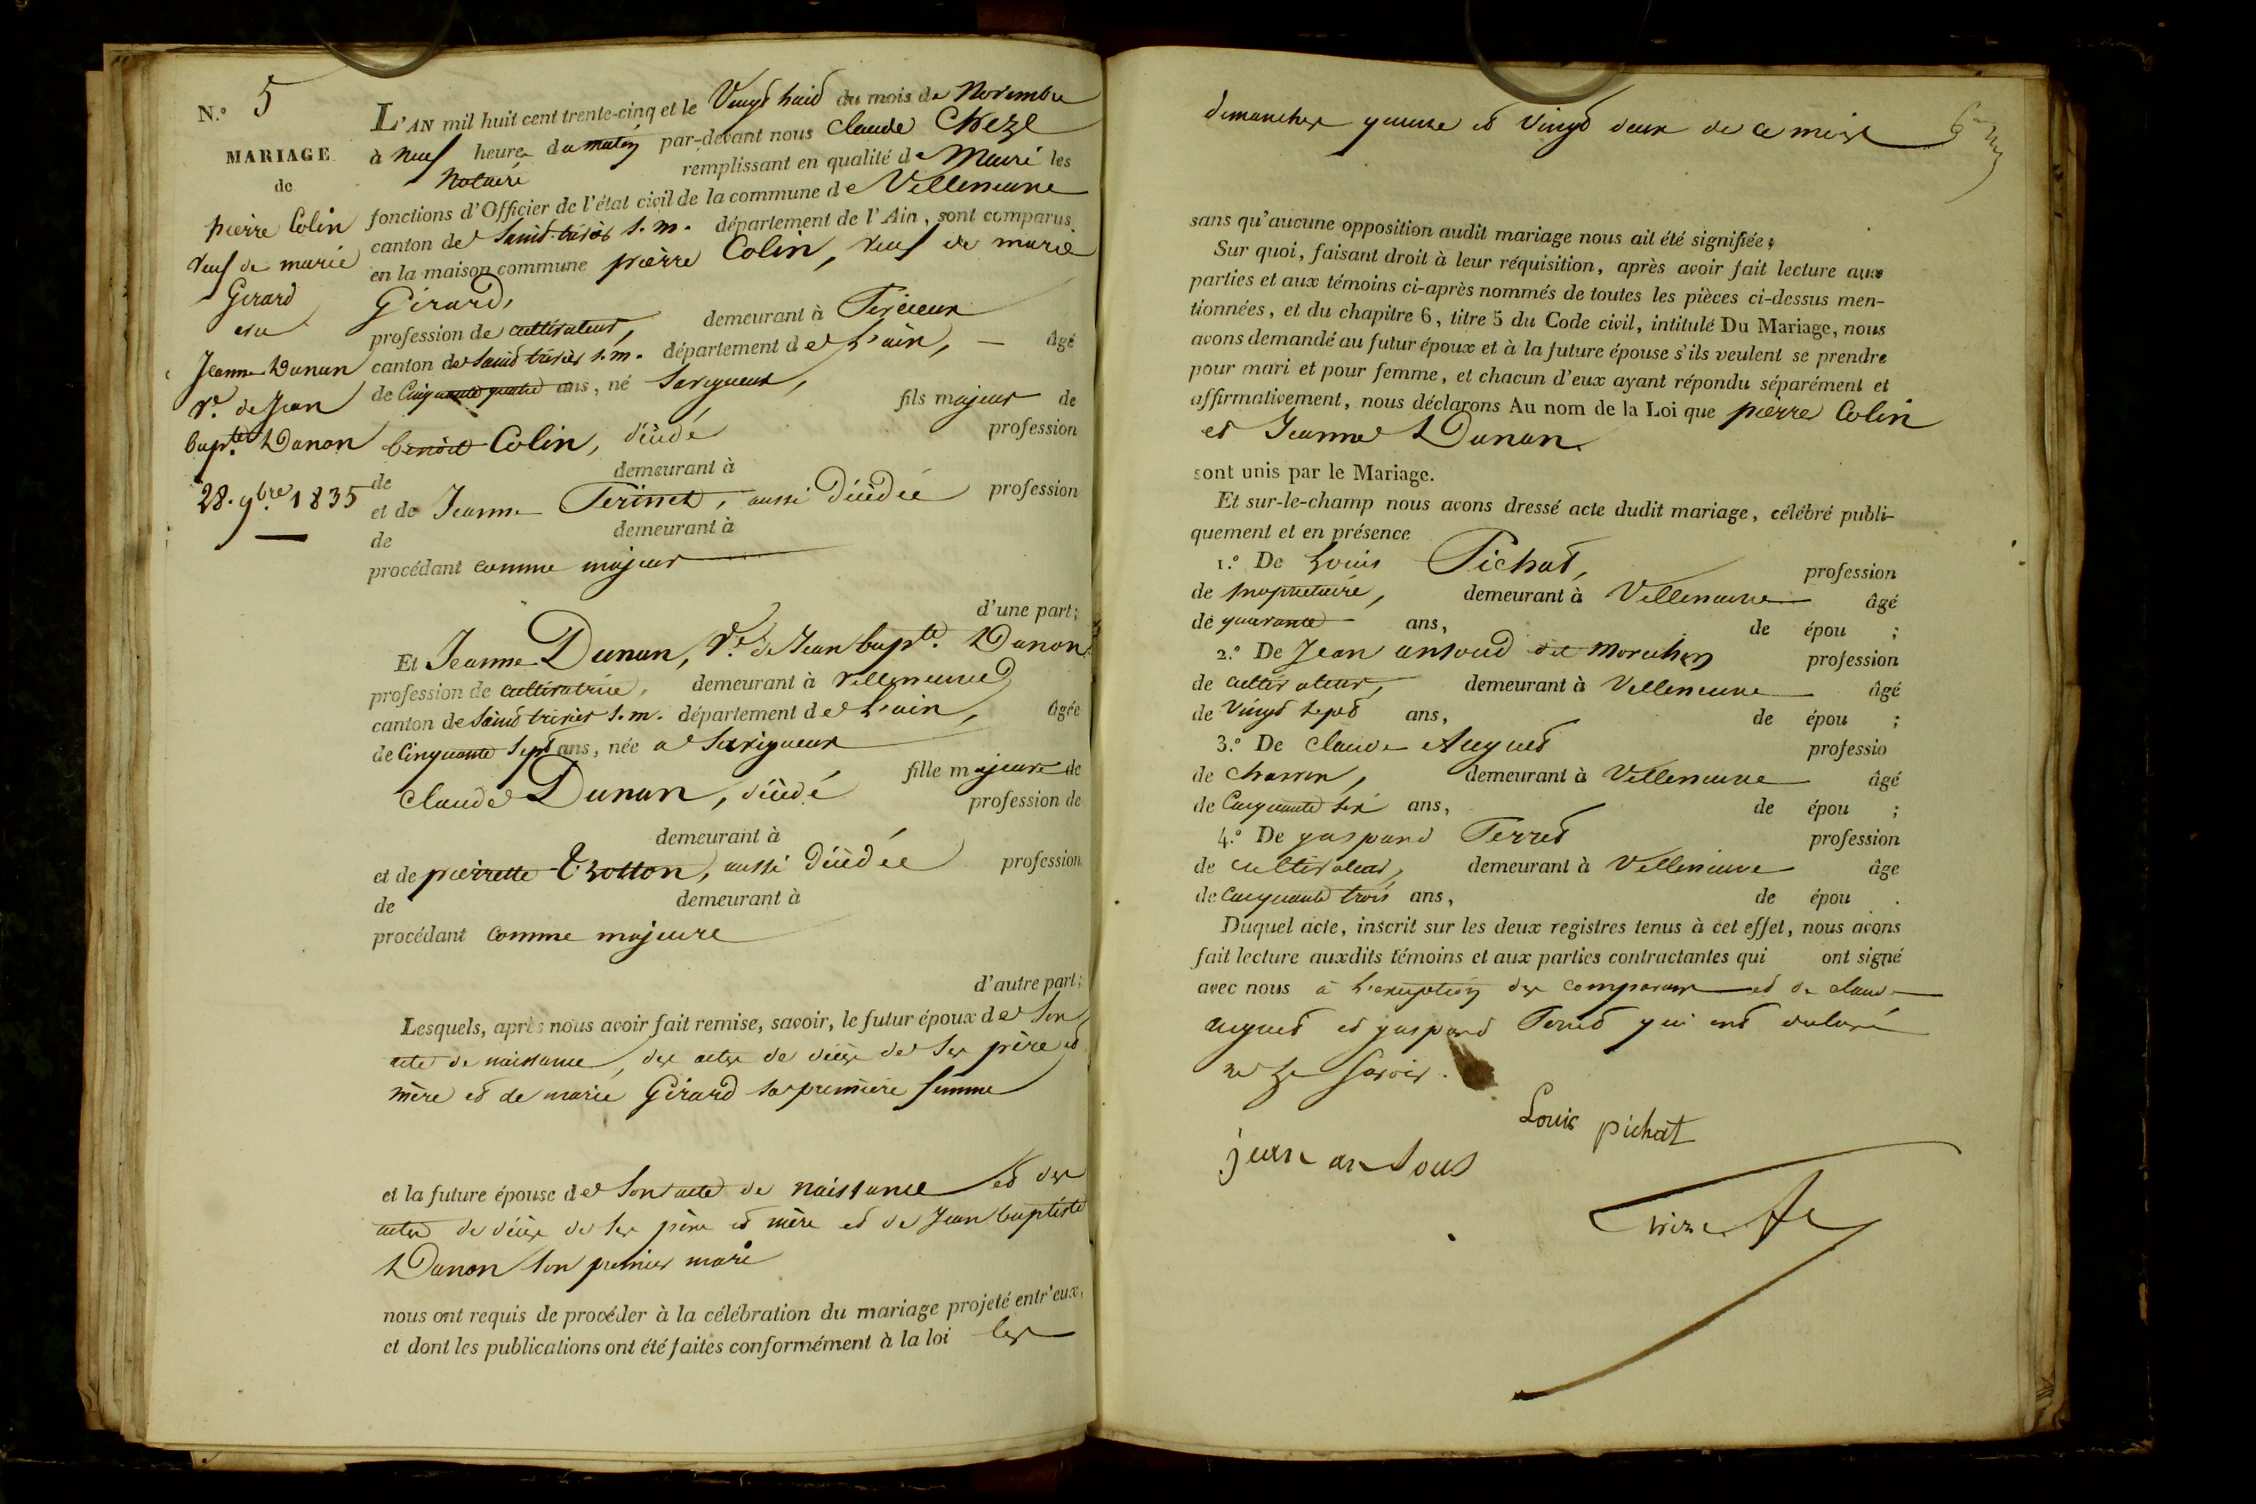 N.° 5
MARIAGE
de
pierre Colin
veuf de marie
Girard
et
Jeanne Dunan
V.e de Jean
bap.te Danon
28. 9.bre 1835
L'AN mil huit cent trente-cinq et le Vingt huit du mois de Novembre
à neuf heures du matin par-devant nous Claude Cheze
Notaire remplissant en qualité de Maire les
fonctions d'Officier de l'état civil de la commune de Villeneuve
canton de Saint trivier s. m. département de l'Ain, sont comparus
en la maison commune pierre Colin, veuf de marie
Girard,
profession de cultivateur, demeurant à
canton de Saint trivier s. m. département de L'ain, — âgé
de Cinquante quatre ans, né Savigneux,
fils majeur de
benoit Colin, décédé profession
de demeurant à
et de Jeanne Perinet, aussi décédée profession
de demeurant à
procédant comme majeur
d'une part;
Et Jeanne Dunan, V.e de Jean bap.te Danon
profession de cultivatrice, demeurant à villeneuve
canton de Saint trivier s. m. département de L'ain, âgée
de Cinquante Sept ans, née a Savigneux
fille majeure de
claude Dunan, décédé profession de
demeurant à
et de pierrette aussi décédée profession
de demeurant à
procédant comme majeure
d'autre part;
Lesquels, après nous avoir fait remise, savoir, le futur époux de Son
acte de naissance, des actes de décès de Ses père et
mère et de marie Girard sa première femme
et la future épouse de Son acte de naissance et des
actes de décès de Ses père et mère et de Jean baptiste
Danon Son premier mari
nous ont requis de procéder à la célébration du mariage projeté entr'eux,
et dont les publications ont été faites conformément à la loi les
dimanches quinze et vingt deux de ce mois
sans qu'aucune opposition audit mariage nous ait été signifiée;
Sur quoi, faisant droit à leur réquisition, après avoir fait lecture aux
parties et aux témoins ci-après nommés de toutes les pièces ci-dessus men-
tionnées, et du chapitre 6, titre 5 du Code civil, intitulé Du Mariage, nous
avons demandé au futur époux et à la future épouse s'ils veulent se prendre
pour mari et pour femme, et chacun d'eux ayant répondu séparément et
affirmativement, nous déclarons Au nom de la Loi que pierre Colin
et Jeanne Dunan
sont unis par le Mariage.
Et sur-le-champ nous avons dressé acte dudit mariage, célébré publi-
quement et en présence
1.° De Louis Pichat, profession
de propriétaire, demeurant à Villeneuve âgé
de quarante ans, de épou ;
2.° De Jean ansoud dit profession
de cultivateur, demeurant à Villeneuve âgé
de Vingt Sept ans, de épou ;
3.° De claude Auguet professio
de charron, demeurant à Villeneuve âgé
de Cinquante Six ans, de épou ;
4.° De gaspard Terret profession
de cultivateur, demeurant à Villeneuve âge
de cinquante trois ans, de épou .
Duquel acte, inscrit sur les deux registres tenus à cet effet, nous avons
fait lecture auxdits témoins et aux parties contractantes qui ont signé
avec nous à L'exception des comparans et de claude
auguet et gaspard Terret qui ont déclaré
ne le Savoir.
Louis pichat
jean ansoud